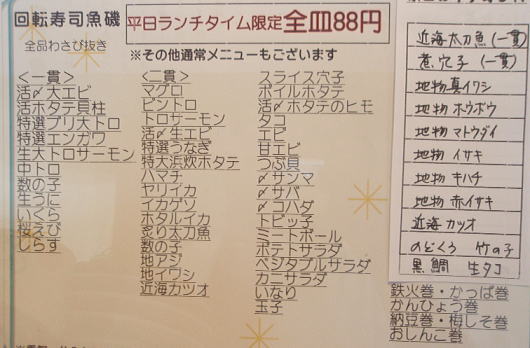 回転寿司魚磯
全品わさび抜き
平日ランチタイム限定全皿88円
※その他通常メニューもございます
<一貫>
活〆大エビ
活ホタテ貝柱
特選ブリ大トロ
特選エンガワ
生大トロサーモン
中トロ
数の子
生うに
いくら
桜えび
しらす
<二貫>
マグロ
ビントロ
トロサーモン
活〆生エビ
特選うなぎ
特大浜炊ホタテ
ハマチ
ヤリイカ
イカゲソ
ホタルイカ
炙り太刀魚
数の子
地アジ
地イワシ
近海カツオ
スライス穴子
ボイルホタテ
活〆ホタテのヒモ
タコ
エビ
甘エビ
つぶ貝
〆サンマ
〆サバ
〆コハダ
トビッ子
ミートボール
ポテトサラダ
ベジタブルサラダ
カニサラダ
いなり
玉子
近海太刀魚(一貫)
煮穴子(一貫)
地物真イワシ
地物ホウボウ
地物マトウダイ
地物イサキ
地物キハチ
地物赤イサキ
近海カツオ
のどくろ 竹の子
黒鯛 生タコ
鉄火巻・かっぱ巻
かんぴょう巻
納豆巻・梅しそ巻
おしんこ巻